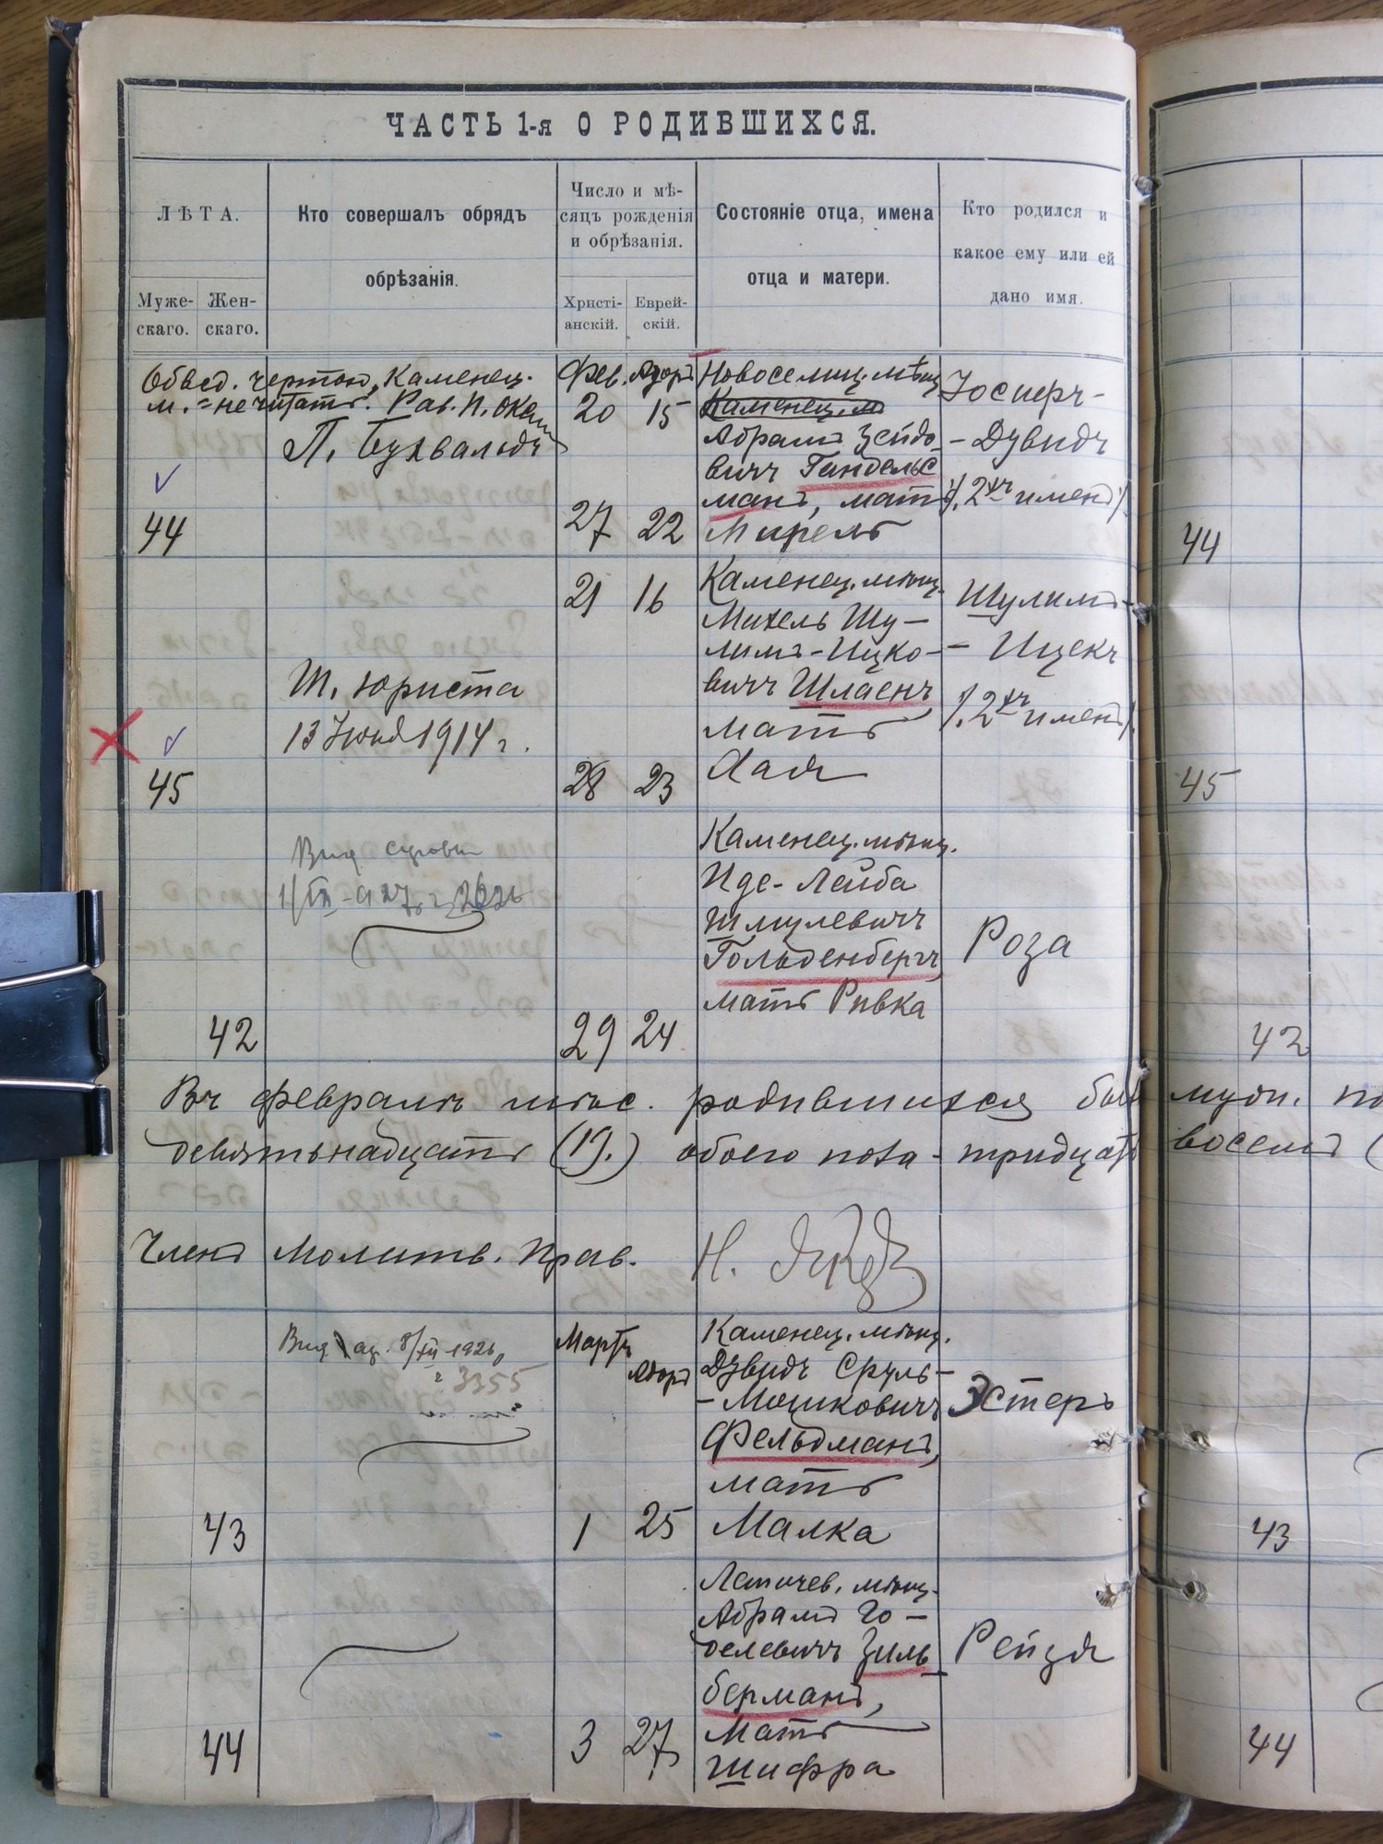 ЧАСТЬ 1-я О РОДИВШИХСЯ.
ЛѢТА.
Муже-
скаго.
Жен-
скаго.
Кто совершалъ обрядъ
обрѣзанія.
Число и мѣ-
сяцъ рожденія
и обрѣзанія.
Христі-
анскій.
Еврей-
скій.
Состояніе отца, имена
отца и матери.
Кто родился и
какое ему или ей
дано имя.
Обвед. чертою, Каменец.
м. = не читать. Рав. Н.
П. Бухвальдъ
44
Фев.
20
27
Адоръ
15
22
Новоселиц. мѣщ
Каменец. м
Абрамъ Зейдо
вичъ Гандельс
манъ, мать
Мирель
Іосифъ-
- Дувидъ
/. 2хъ имена /.
44
Ш. Юриста
13 Іюня 1914 г.
45
21 16
28 23
Каменец. мѣщ.
Михель Шу-
лимъ-Ицко-
вичъ Шлаенъ,
мать
Хая
Шулимъ-
- Ицекъ
/. 2хъ имена /.
45
42
29 24
Каменец. мѣщ.
Иде-Лейба
Шмулевичъ
Гольденбергъ,
мать Ривка
Роза
42
Въ февралѣ мѣс. родившихся муж. по
девятьнадцать (19.) обоего пола - тридцать восемь (
Членъ Молитв. Прав. Н.
43
8/XII 1926
3355
Мартъ
1
Адоръ
25
Каменец. мѣщ.
Дувидъ Сруль-
- Мошковичъ
Фельдманъ,
мать
Малка
Эстеръ
43
44
3 27
Летичев. мѣщ.
Абрамъ Го-
делевичъ Зиль
берманъ,
Мать
Шифра
Рейзя
44